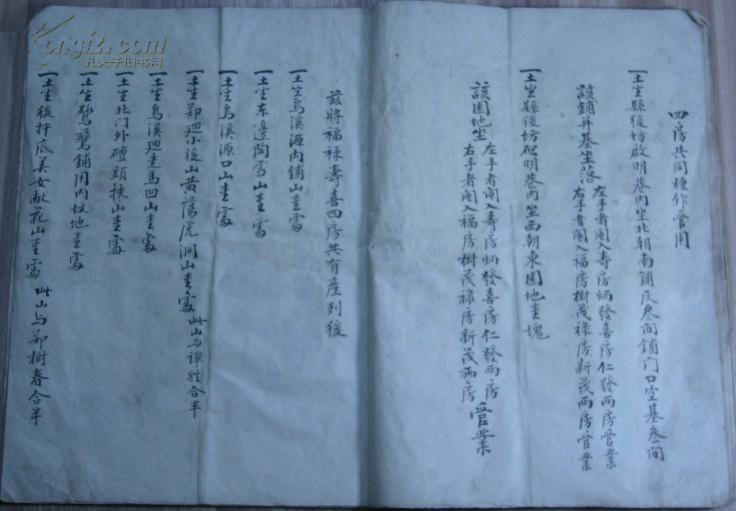 四房共同種作管用
一土坐縣後坊啟明巷內坐北朝南鋪屋叁間鋪門口空基叁間
該鋪并基坐落左手者鬮入壽房炳發喜房仁發兩房
右手者鬮入福房樹茂祿房新茂兩房管業
一土坐縣後坊啟明巷內坐西朝東園地壹塊
該園地坐左手者鬮入壽房炳發喜房仁發兩房
右手者鬮入福房樹茂祿房新茂兩房管業
茲將福祿壽喜四房共有產列後
一土坐烏溪源內鋪山壹處
一土坐東邊陶窩山壹處
一土坐烏溪源口山壹處
一土坐鄭迴小後山黃蕩虎洞山壹處此山与譚姓合半
一土坐烏溪迴走馬凹山壹處
一土坐北門外碴頭挾山壹處
一土坐鷔鷔鋪用內坟地壹處
一土坐後扞底美女献花山壹處 此山与鄭樹春合半
孔夫子旧书网